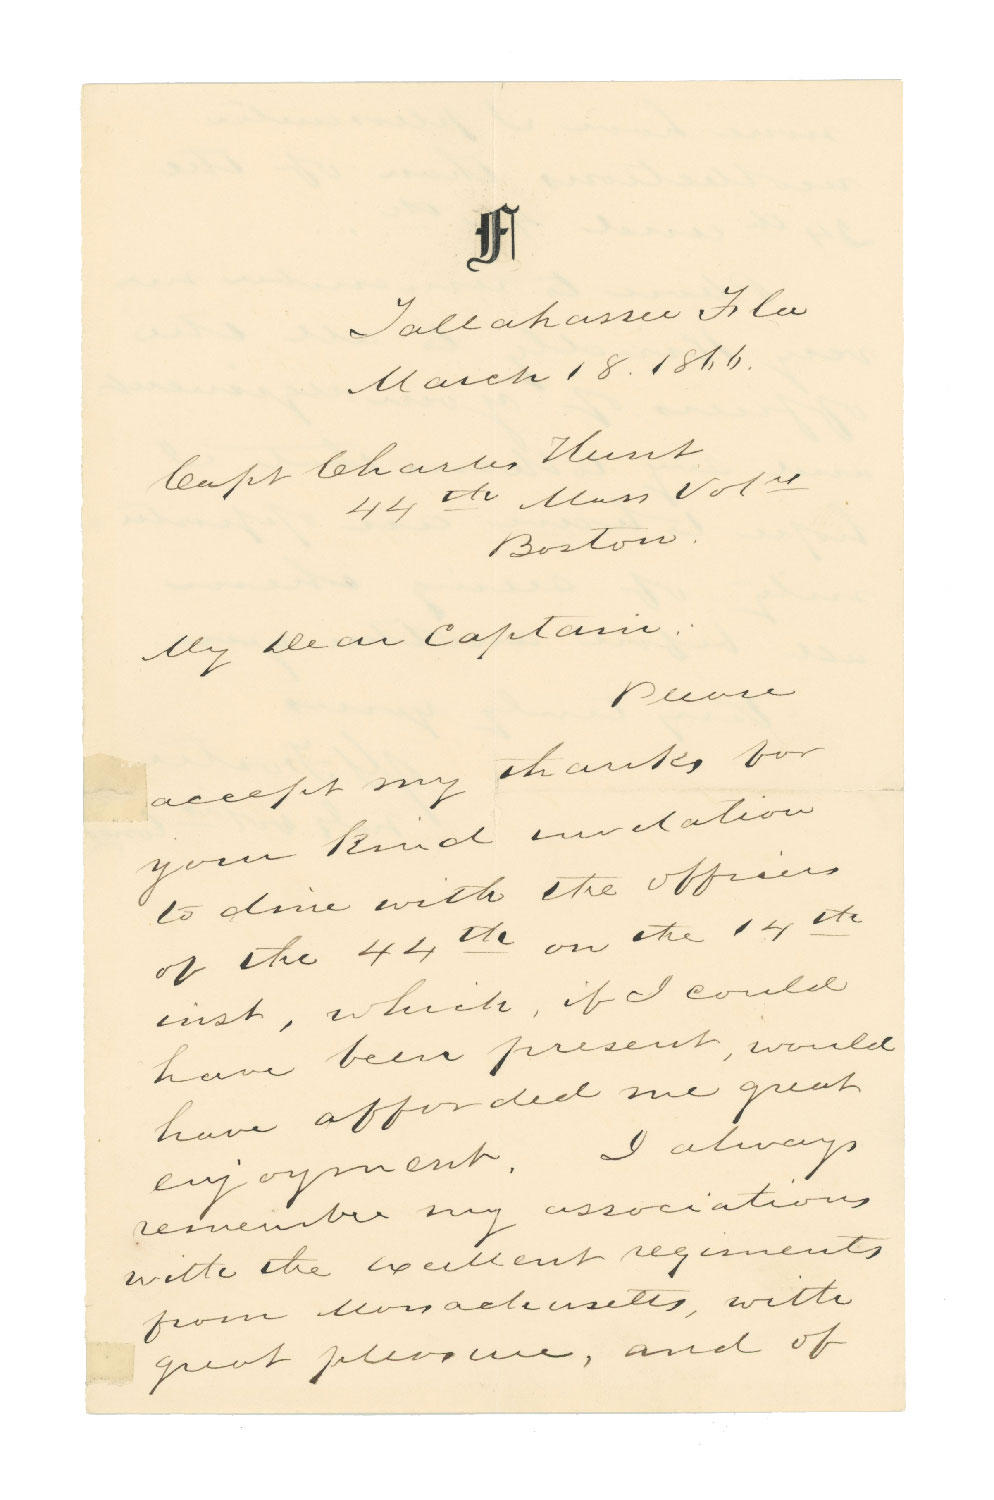 F
Tallahassee Fla
March 18. 1866.
Capt Charles Hunt
44th Mass Vols
Boston.
My Dear Captain:
Please
accept my thanks for
your kind invitation
to dine with the officers
of the 44th on the 14th
inst, which, if I could
have been present, would
have afforded me great
enjoyment. I always
remember my associations
with the excellent regiments
from Massachusetts, with
great pleasure, and of